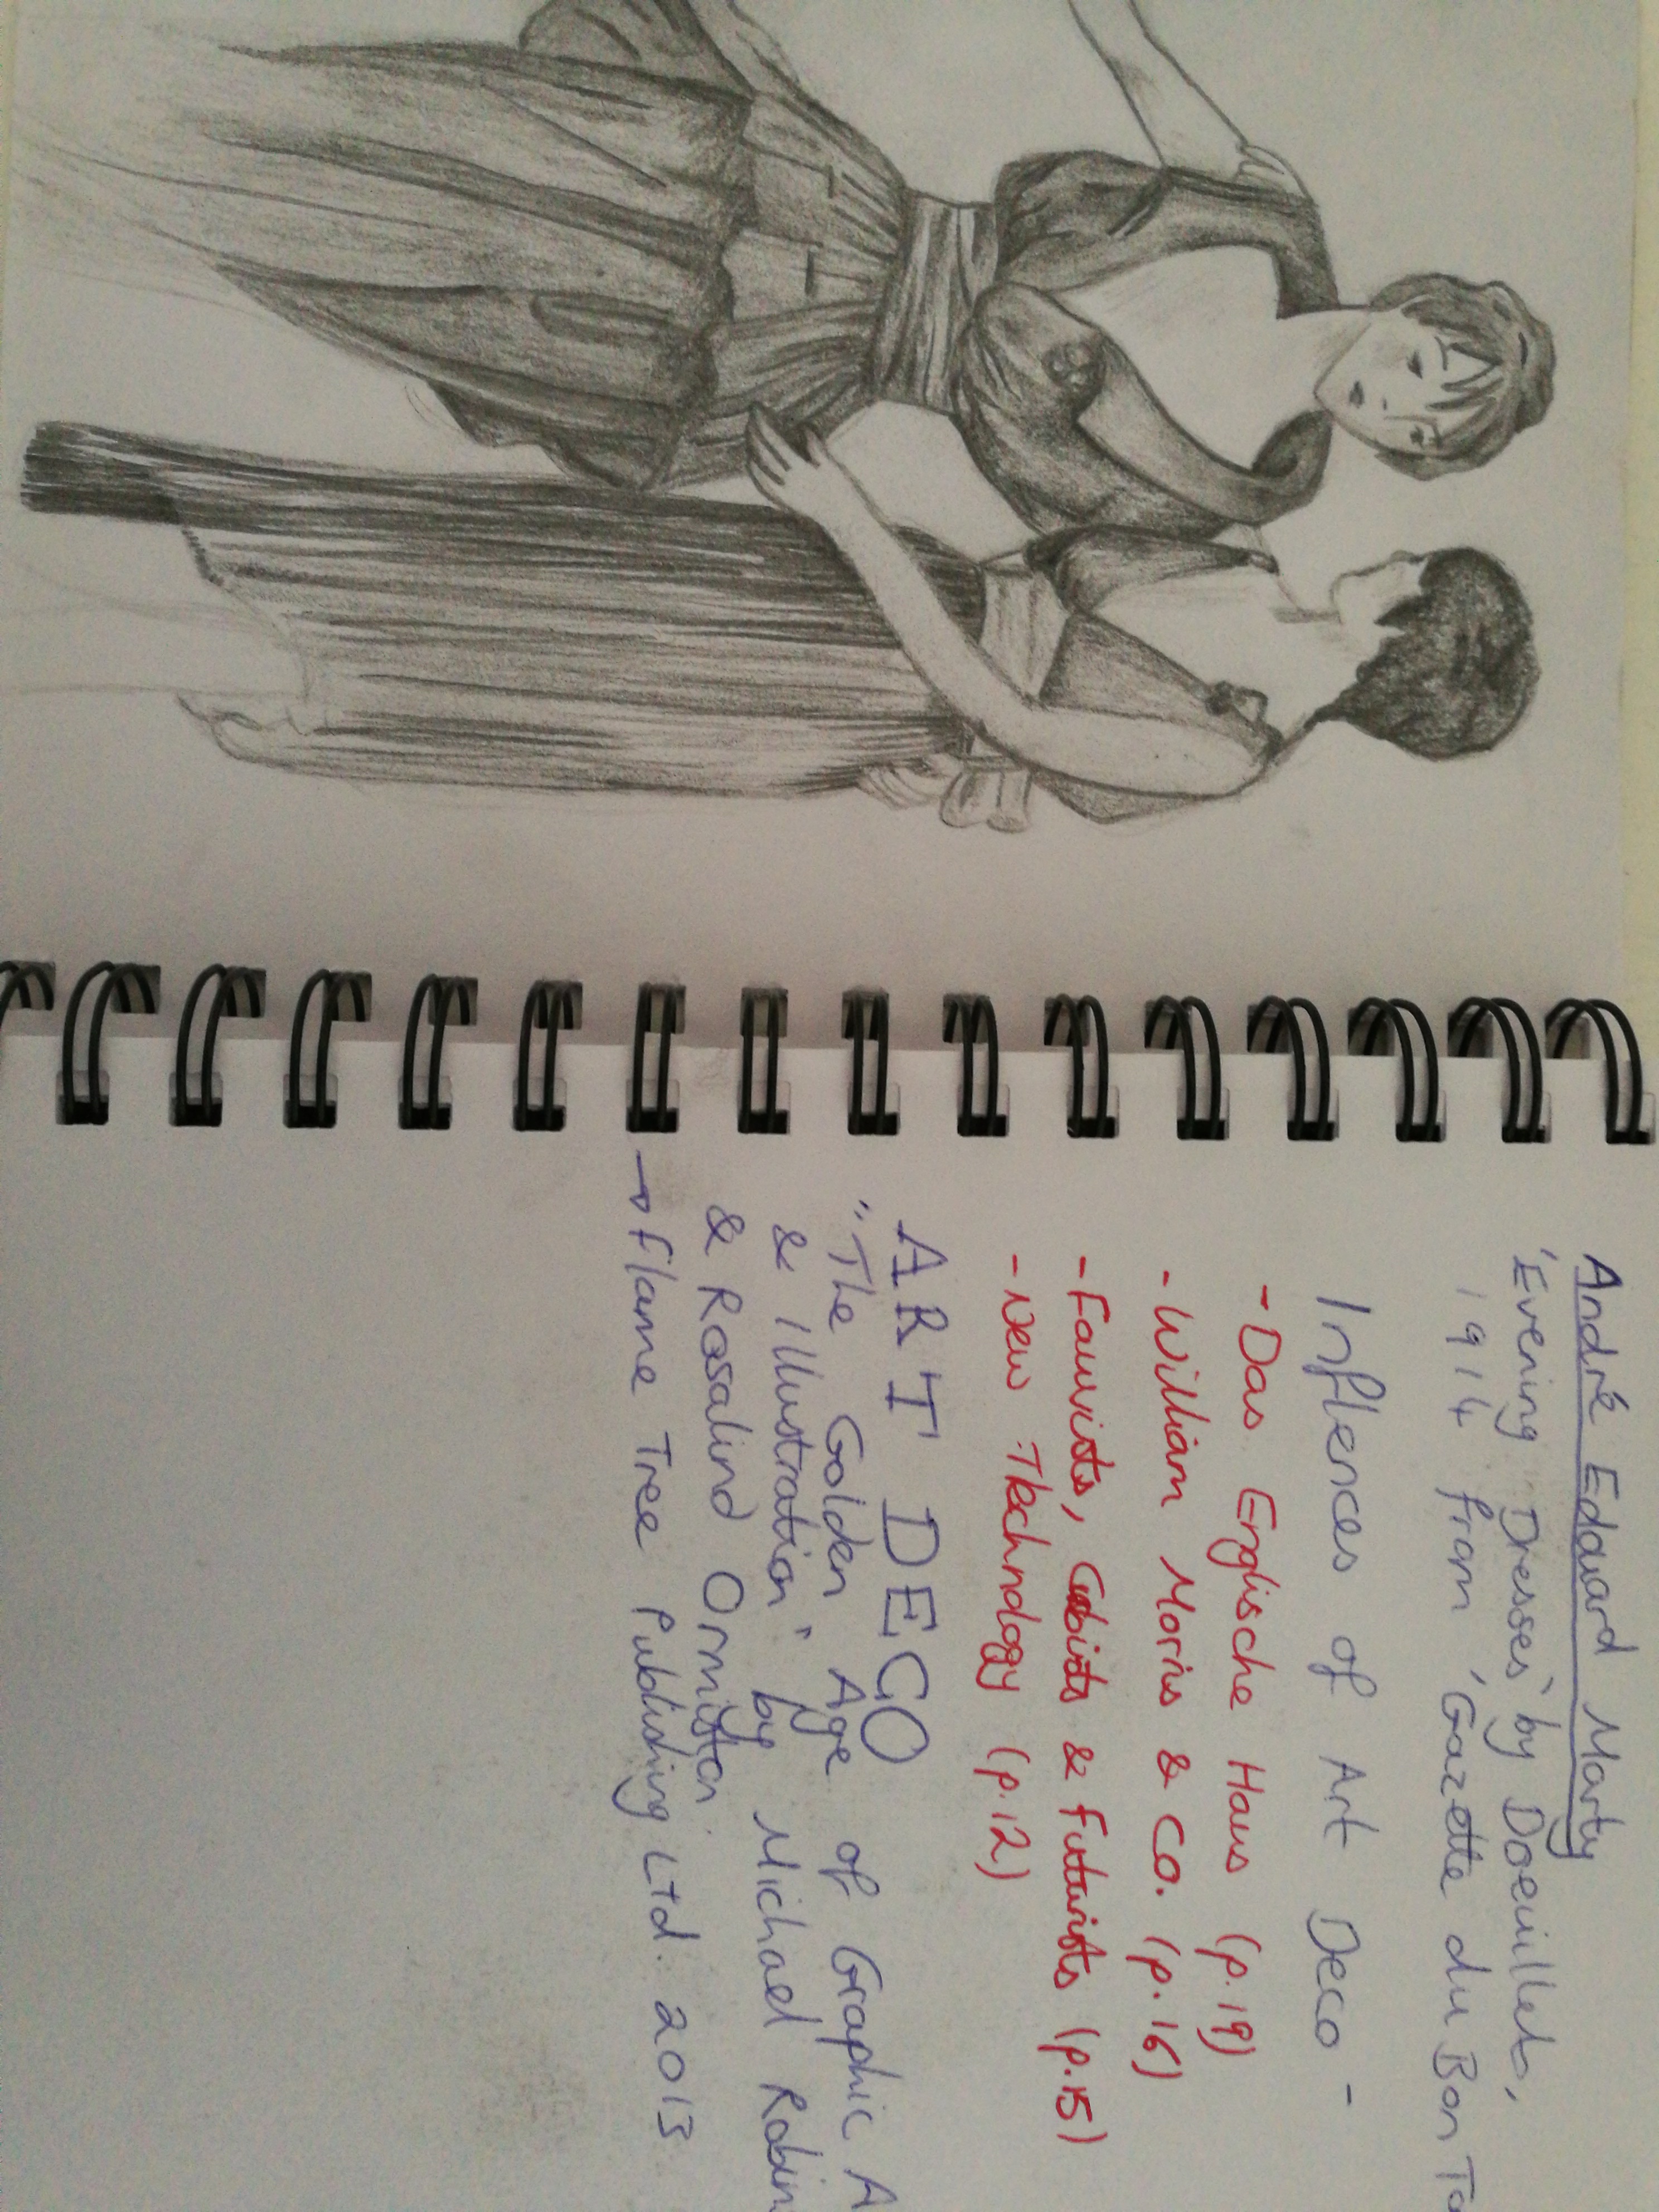 André Edouard Marty
'Evening Dresses' by Doeuillets,
1914 from 'Gazette du Bon To
Inflences of Art Deco -
- Das Englische Haus (p.19)
- William Morris & Co. (p.16)
- Fauvists, Cubists & Futurists (p.15)
- New Technology (p.12)
ART DECO
"The Golden Age of Graphic A
& Illustration" by Michael Robins
& Rosalind Ormiston
→ Flame Tree Publishing Ltd. 2013